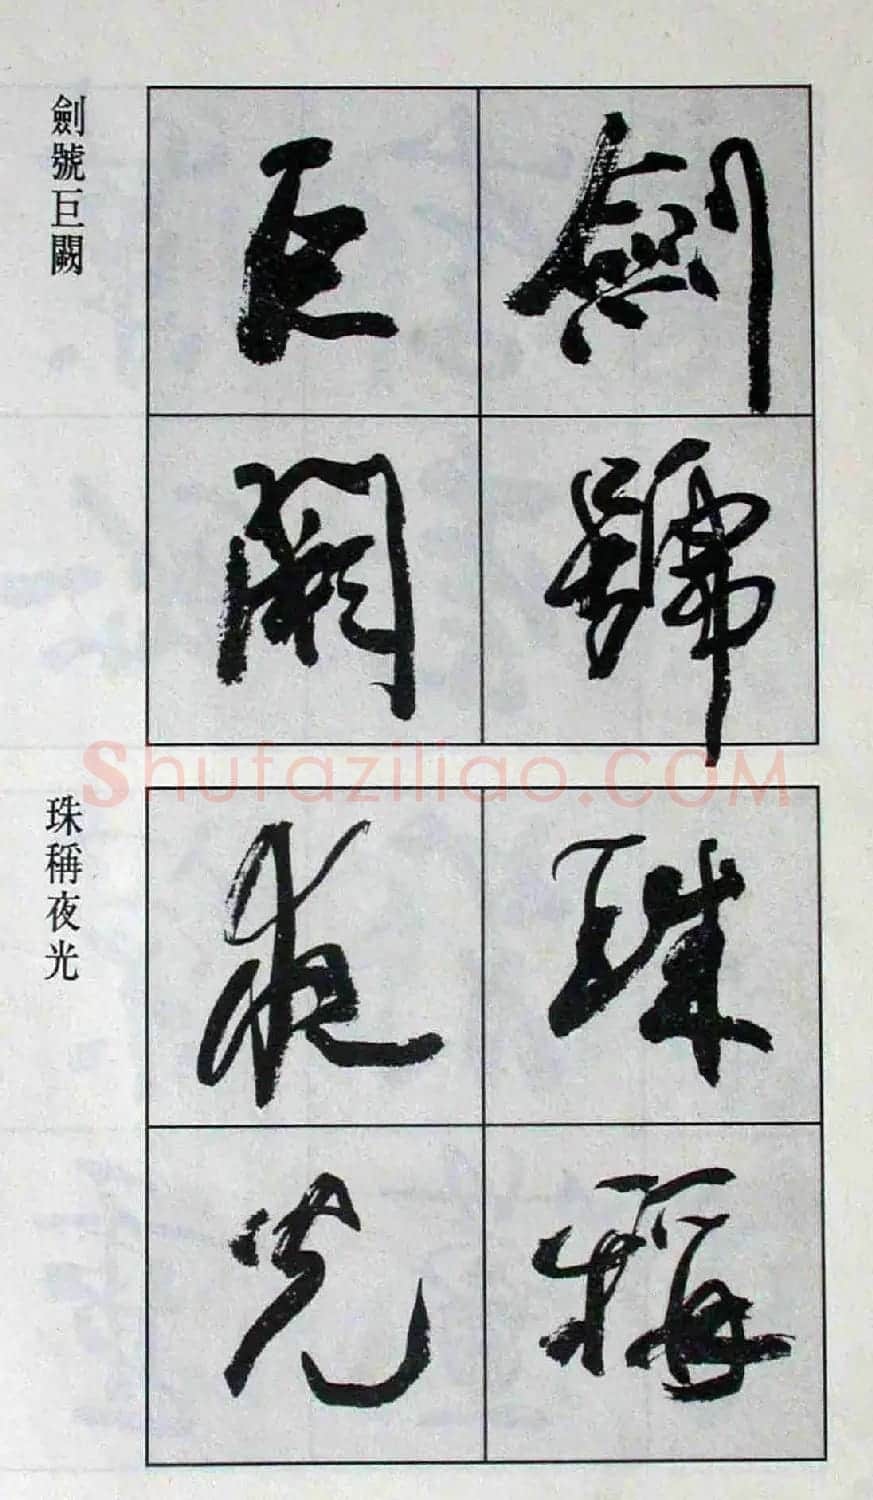 劍號
巨闕
劍號巨闕
珠稱
夜光
珠稱夜光
Shufaziliao.COM